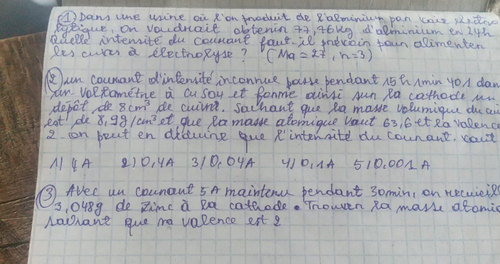 ① Dans une usine où l'on produit de l'aluminium par voie électro
lytique, on voudrait obtenir 77,76 kg d'aluminium en 24h
Quelle intensité du courant faut-il prévoir pour alimenter
les cuves à électrolyse ? (Ma = 27, n=3)
② un courant d'intensité inconnue passe pendant 15h 1min 40s dans
un voltamètre à CuSO4 et forme ainsi sur la cathode un
dépôt de 8cm³ de cuivre. Sachant que la masse volumique du cu
est de 8,9g/cm³ et que la masse atomique vaut 63,6 et la valence
2 - on peut en déduire que l'intensité du courant vaut
1) 4A 2) 0,4A 3) 0,04A 4) 0,1A 5) 0,001A
③ Avec un courant 5A maintenu pendant 30min, on recueille
3,048g de zinc à la cathode. Trouver la masse atomi
sachant que sa valence est 2